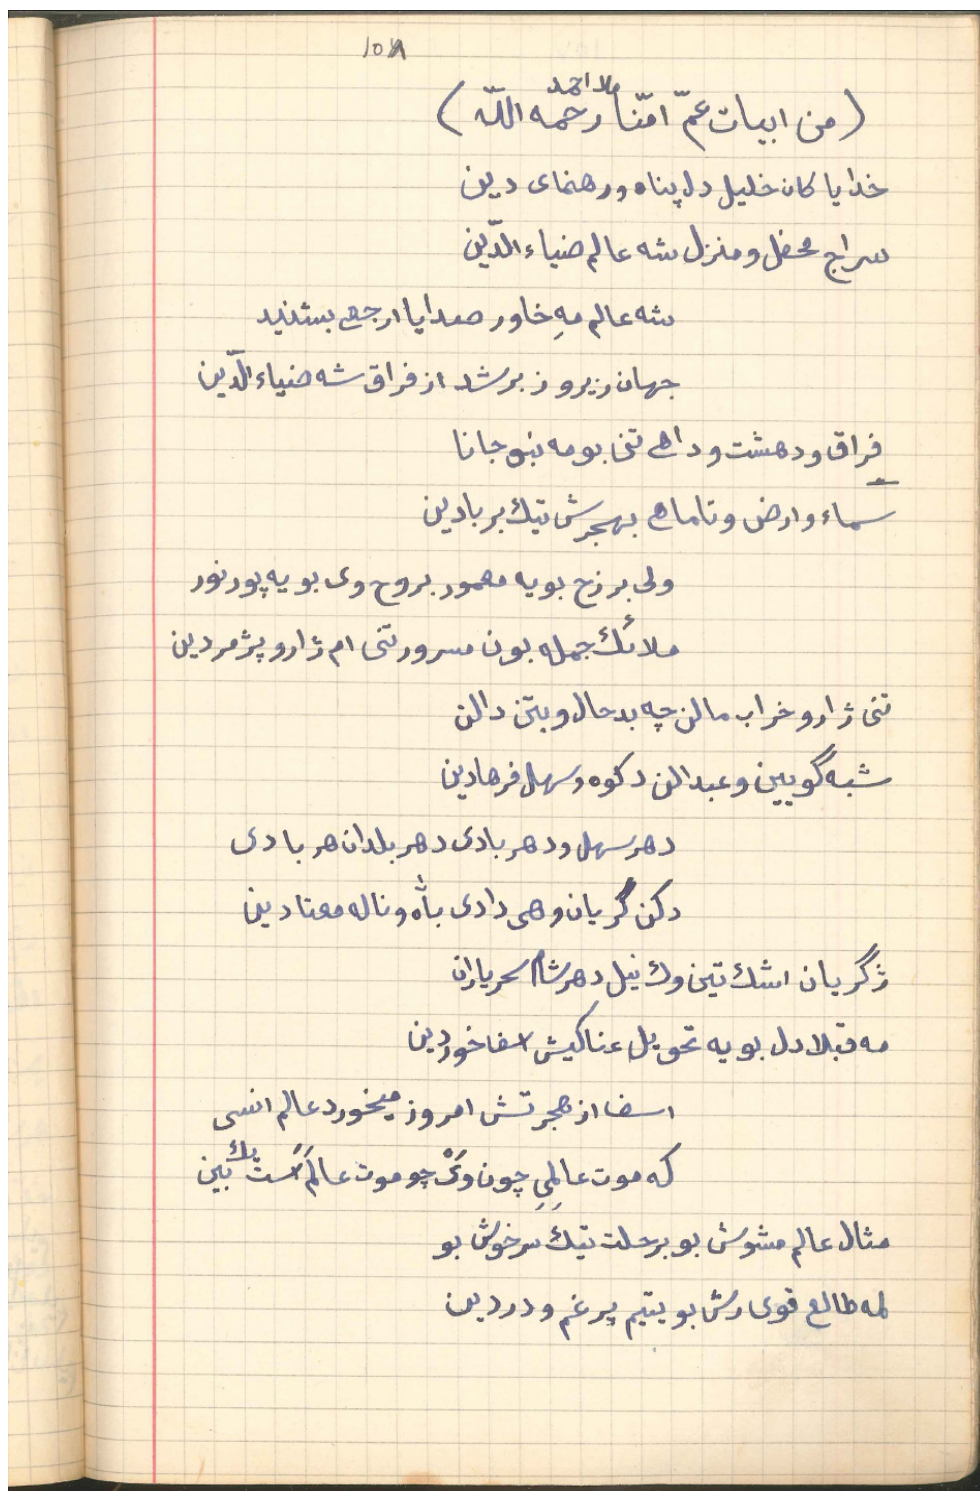 ١٥٨
(من ابيات عمّ امّنا ملا احمد رحمه اللّه)
خدایا کان خلیل دل پناه و رهنمای دین
سراج محفل و منزل شه عالم ضیاء الدّین
شه عالم مهِ خاور صدایا ارجعی بشنید
جهان زیر و زبر شد از فراق شه ضیاء الدّین
فراق و دهشت و داهی تنی بو مه بنو جانا
سماء وارض و تاماهی بهجرش تیك بربادین
ولی برزخ بویه معمور بروح وی بویه پور نور
ملائك جمله بون مسرور تنی ام ژار و پژمردین
تنی ژار و خراب مالن چه بدحال و بتن دالن
شبه گویین و عبدالن د کوه و سهل فرهادین
دهر سهل و دهر بادی دهر بلدان هر بادی
دکن گریان و هی دادی بآه و ناله معتادین
ژ گریان اشك تین وك نیل دهر شام سحر یاران
مه قبلا دل بویه تحویل عناکیش اسفا خوردین
اسفا از هجرتش امروز میخورد عالم انسی
که موت عالمِیِ چون ویْ چو موت عالَم است یك بین
مثال عالم مشوش بو برحلت تیك سرخوش بو
لمه طالع قوی رش بو یتیم پر غم و دردین